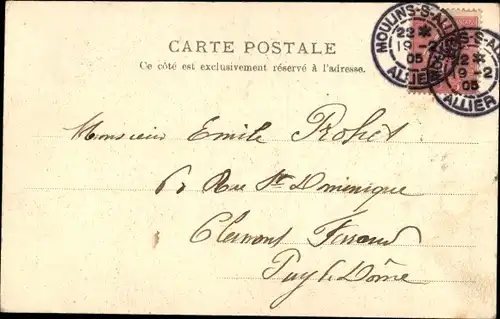 CARTE POSTALE
Ce côté est exclusivement réservé à l'adresse.
MOULINS-S-ALLIER
22 *
19 -2
05
ALLIER
22 *
19 -2
05
ALLIER
Monsieur Emile
Rue St Dominique
Clermont Ferrand
Puy de Dôme